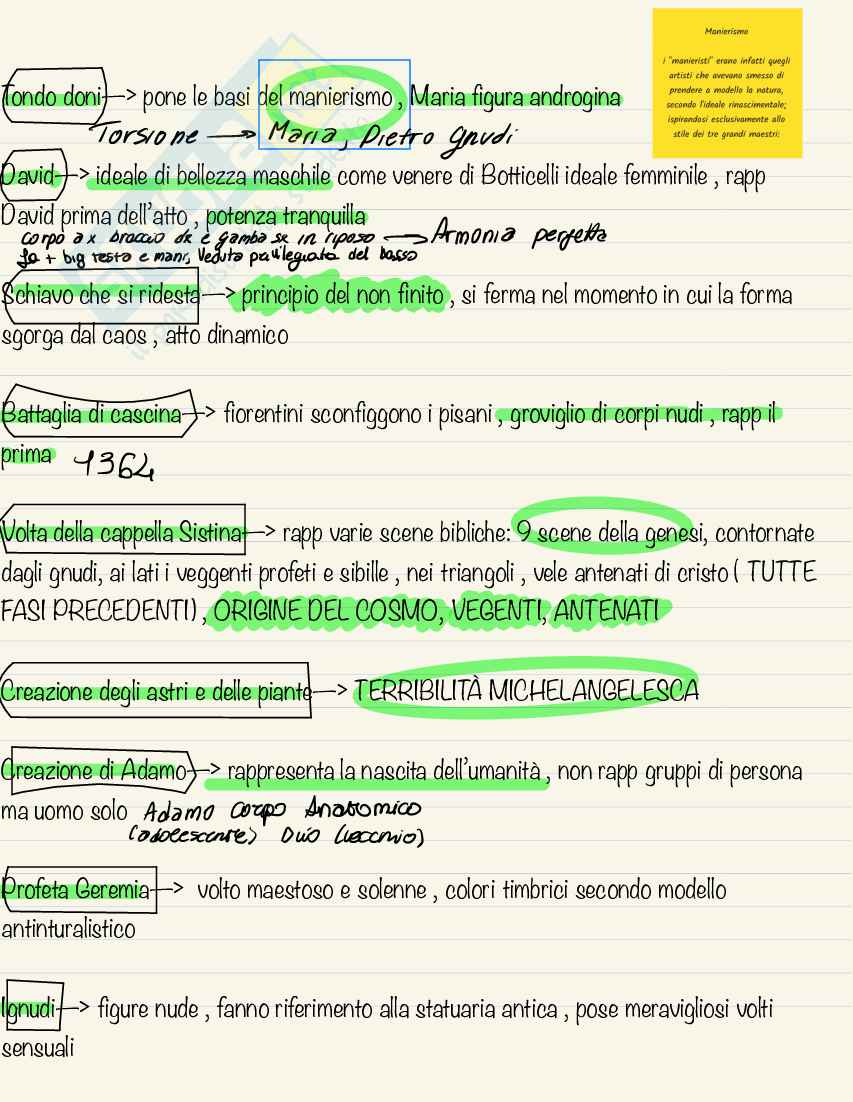 Manierismo
I "manieristi" erano infatti quegli
artisti che avevano smesso di
prendere a modello la natura,
secondo l'ideale rinascimentale;
ispirandosi esclusivamente allo
stile dei tre grandi maestri:
Tondo doni -> pone le basi del manierismo , Maria figura androgina
Torsione -> Maria, Pietro Gnudi
David -> ideale di bellezza maschile come venere di Botticelli ideale femminile , rapp
David prima dell'atto , potenza tranquilla
corpo ax braccio dx e gamba sx in riposo -> Armonia perfetta
+ big testa e mani, Veduta privilegiata del basso
Schiavo che si ridesta -> principio del non finito , si ferma nel momento in cui la forma
sgorga dal caos , atto dinamico
Battaglia di cascina -> fiorentini sconfiggono i pisani , groviglio di corpi nudi , rapp il
prima 1364
Volta della cappella Sistina -> rapp varie scene bibliche: 9 scene della genesi, contornate
dagli gnudi, ai lati i veggenti profeti e sibille , nei triangoli , vele antenati di cristo ( TUTTE
FASI PRECEDENTI) , ORIGINE DEL COSMO, VEGENTI, ANTENATI
Creazione degli astri e delle piante -> TERRIBILITÀ MICHELANGELESCA
Creazione di Adamo -> rappresenta la nascita dell'umanità , non rapp gruppi di persona
ma uomo solo Adamo corpo Anatomico
(adolescente) Dio (vecchio)
Profeta Geremia -> volto maestoso e solenne , colori timbrici secondo modello
antinturalistico
Ignudi -> figure nude , fanno riferimento alla statuaria antica , pose meravigliosi volti
sensuali